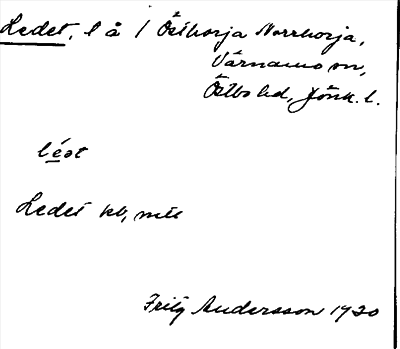 Ledet, l å / Östhorja Norrhorja,
Värnamo sn,
Östbo hd, Jönk. l.
léət
Ledet kb,
Fritz Andersson 1920